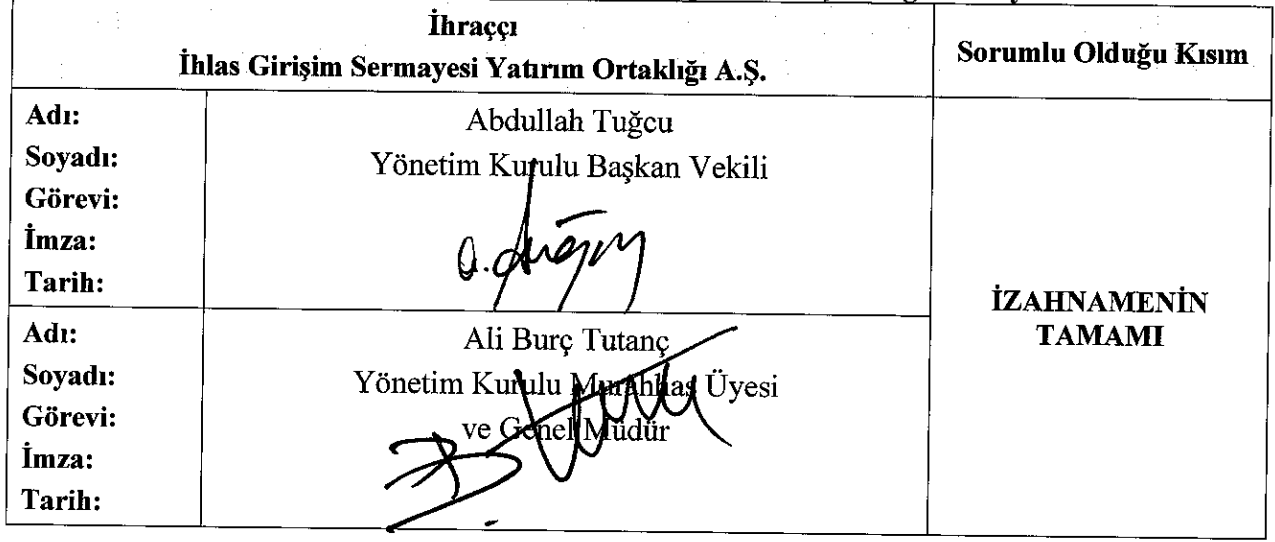 İhraççı
İhlas Girişim Sermayesi Yatırım Ortaklığı A.Ş.
Sorumlu Olduğu Kısım
Adı:
Soyadı:
Görevi:
İmza:
Tarih:
Abdullah Tuğcu
Yönetim Kurulu Başkan Vekili
İZAHNAMENİN
TAMAMI
Adı:
Soyadı:
Görevi:
İmza:
Tarih:
Ali Burç Tutanç
Yönetim Kurulu Murahhas Üyesi
ve Genel Müdür